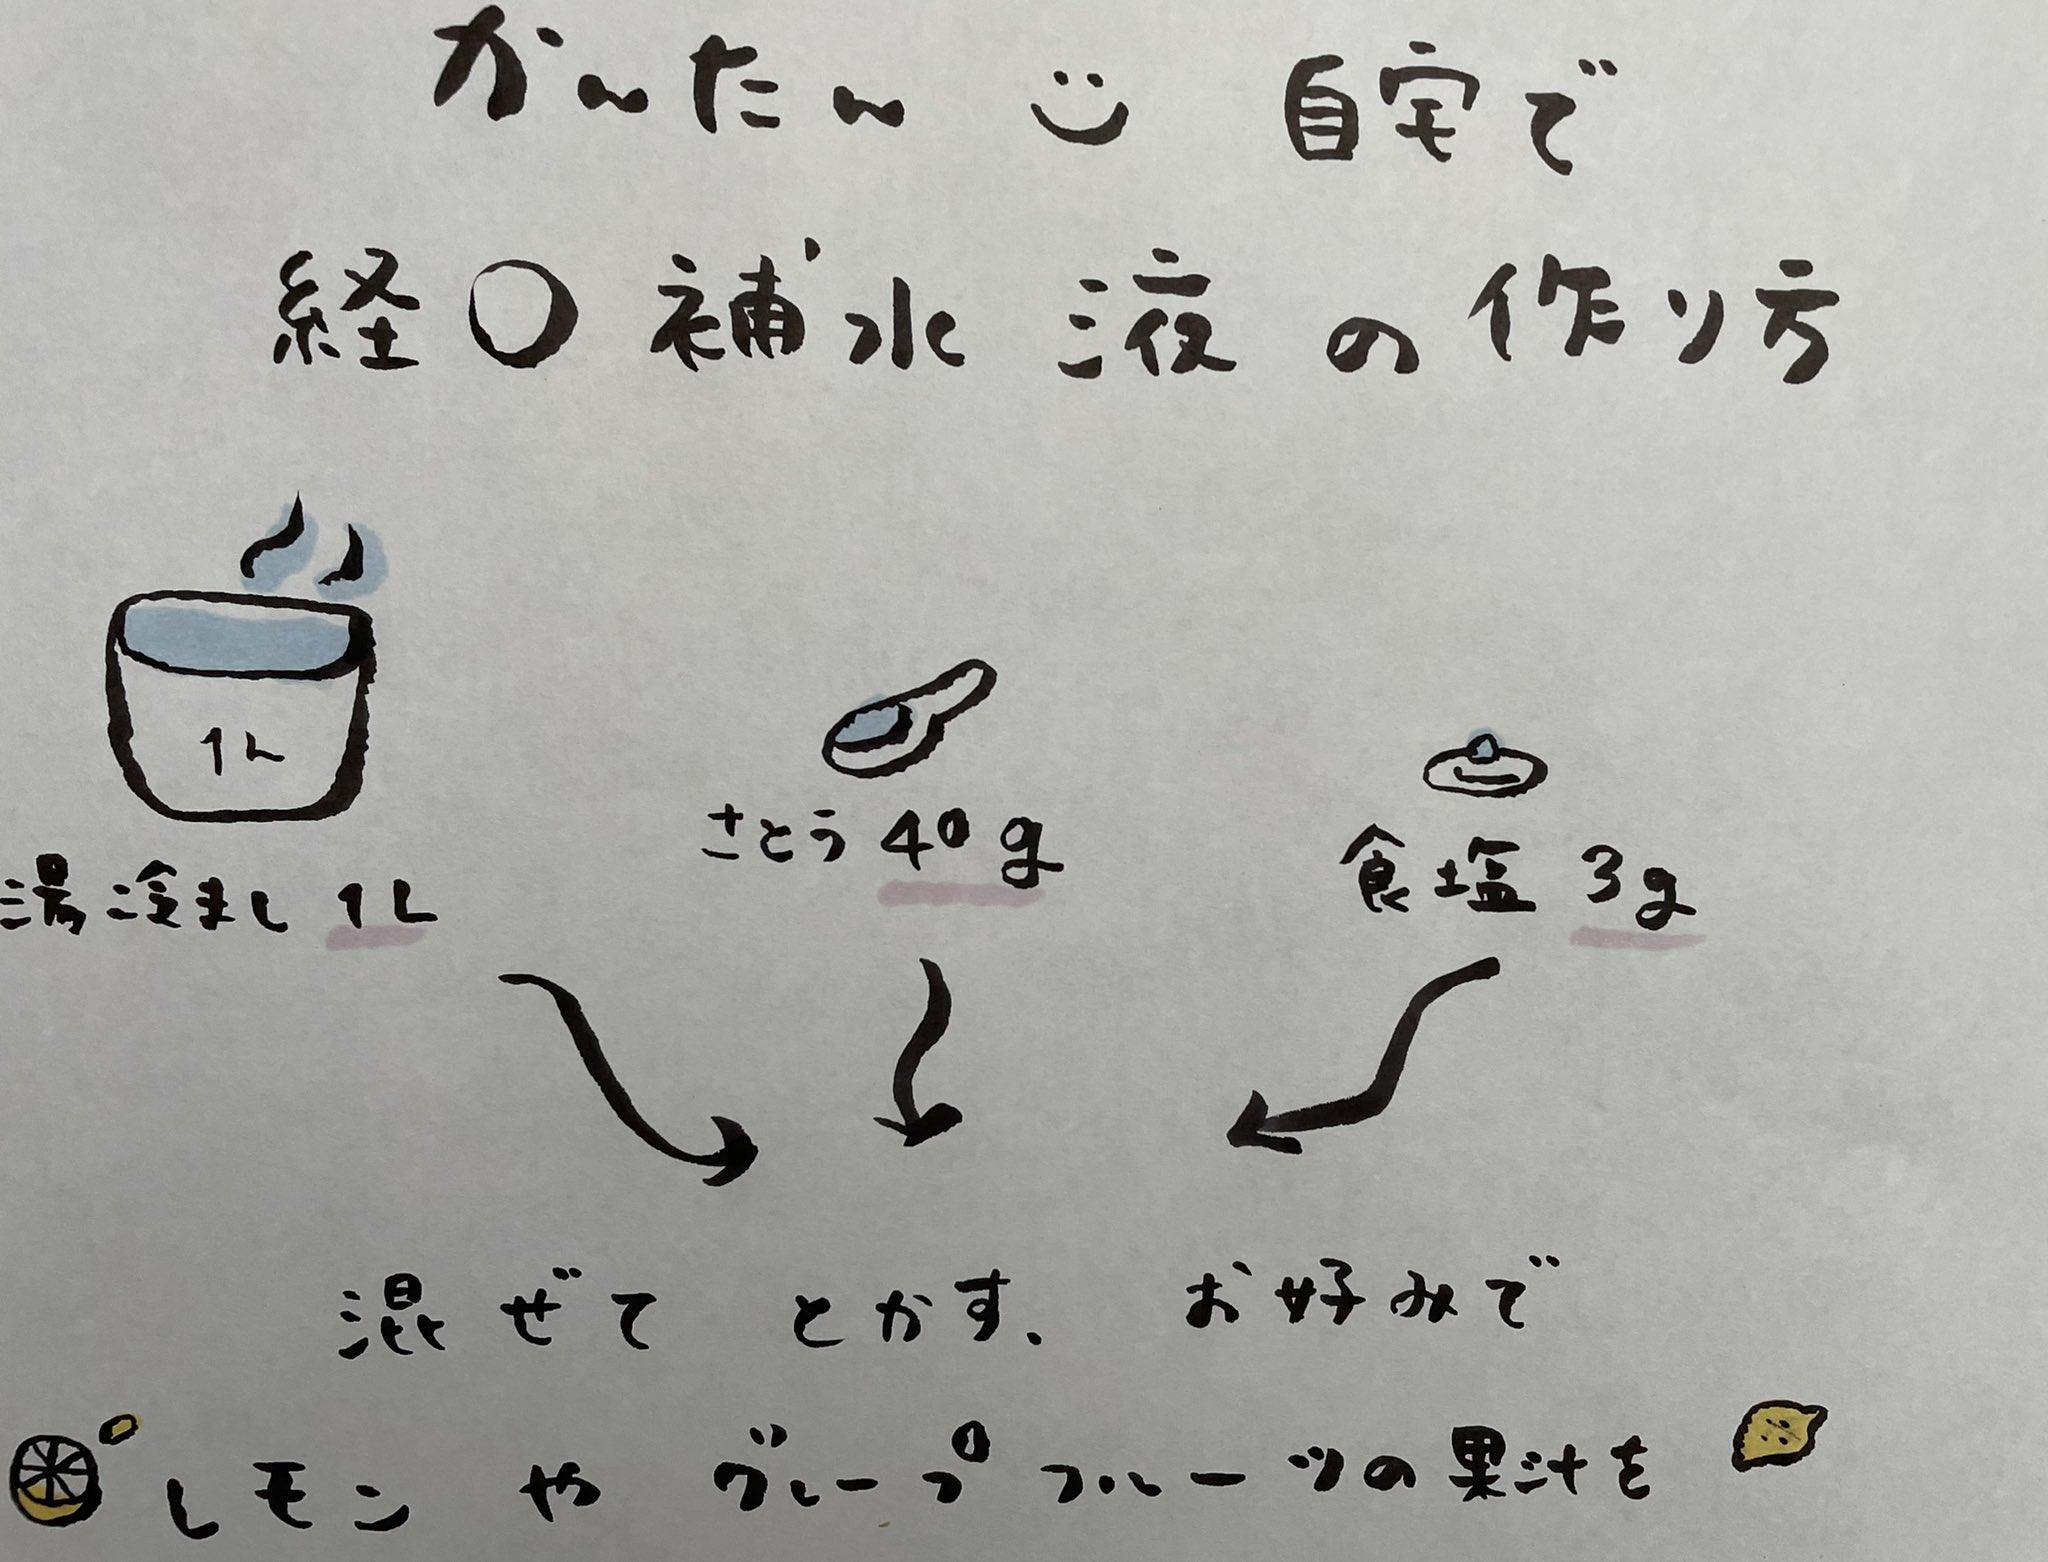 かんたん 自宅で
経口補水液の作り方
1L
さとう 40g
食塩 3g
湯冷まし 1L
混ぜて とかす、 お好みで
レモン や グレープフルーツの果汁を